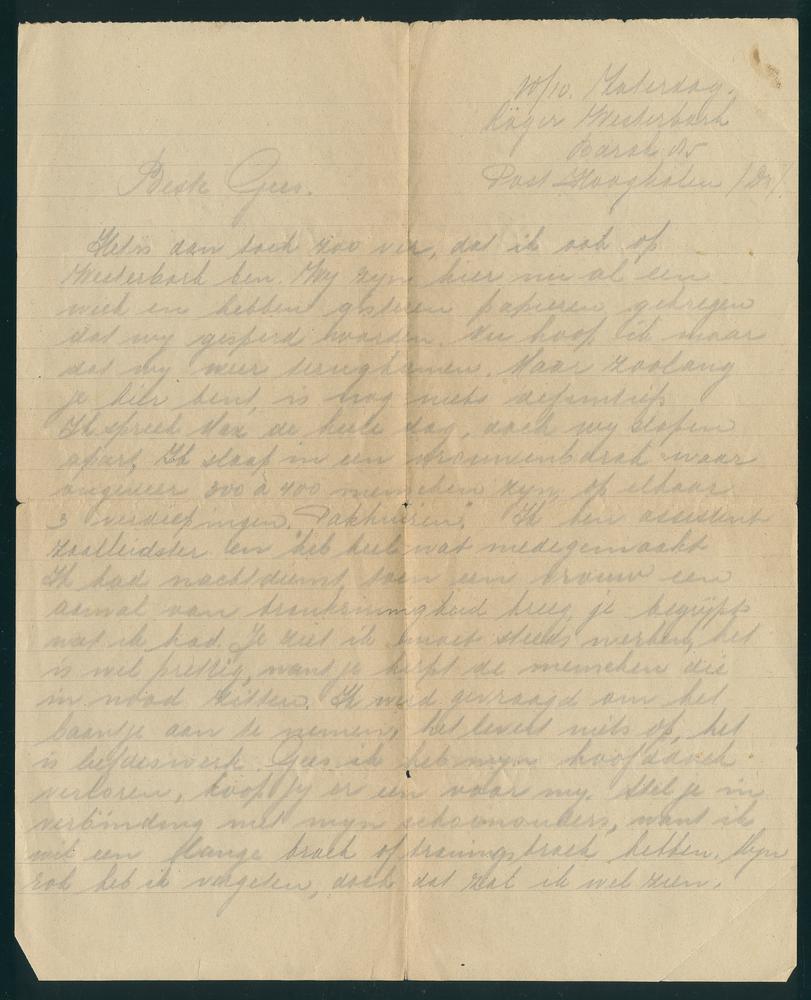 10/10. Zaterdag.
Lager Westerbork
Barak 85
Post Hooghalen /Dr/.
Beste Gees.
Het is dan toch zoo ver, dat ik ook op
Westerbork ben. Wy zyn hier nu al een
week en hebben gisteren papieren gekregen
dat wy gesperd worden. Nu hoop ik maar
dat wy weer terugkomen. Maar zoolang
je hier bent, is nog niets definitief
Ik spreek Max de heele dag, doch wy slapen
apart. Ik slaap in een vrouwenbarak waar
ongeveer 300 à 400 menschen zyn, op elkaar
3 verdiepingen "Pakhuizen". Ik ben assistent
zaalleidster en heb heel wat medegemaakt
Ik had nachtdienst, toen een vrouw een
aanval van krankzinnigheid kreeg, je begrypt
wat ik had. Je ziet ik moet steeds werken, het
is wel prettig, want je helpt de menschen die
in nood zitten. Ik werd gevraagd om het
baantje aan te nemen, het levert niets op, het
is liefdeswerk. Gees ik heb myn hoofddoek
verloren, koop jy er een voor my. Stel je in
verbinding met myn schoonouders, want ik
wil een lange broek of trainingsbroek hebben. Myn
rok heb ik vergeten, doch dat zal ik wel zien.